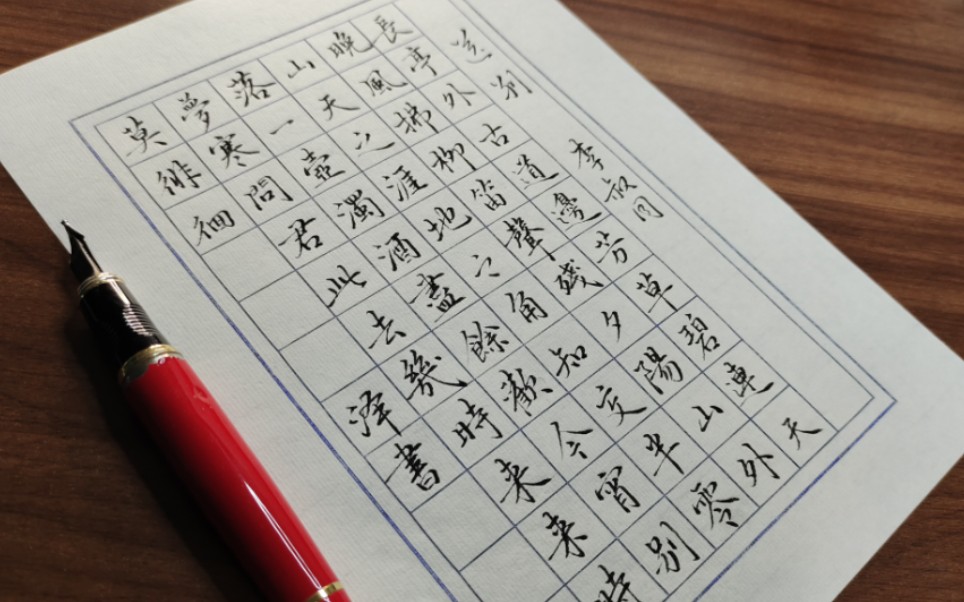 送别
李叔同
長亭外古道邊芳草碧連天
晚風拂柳笛聲殘夕陽山外
山天之涯地之角知交半零
落一壺濁酒盡餘歡今宵別
夢寒問君此去幾時来来時
莫徘徊
泽書